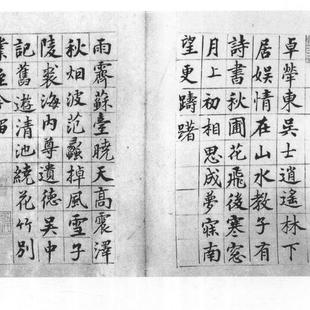 卓犖東吳士逍遥林下
居娛情在山水教子有
詩書秋圃花飛後寒窓
月上初相思成夢寐南
望更躊躇
雨霽蘇臺曉天高震澤
秋烟波范蠡棹風雪子
陵裘海内尊遺德吳中
記舊遊清池繞花竹别
業至今留